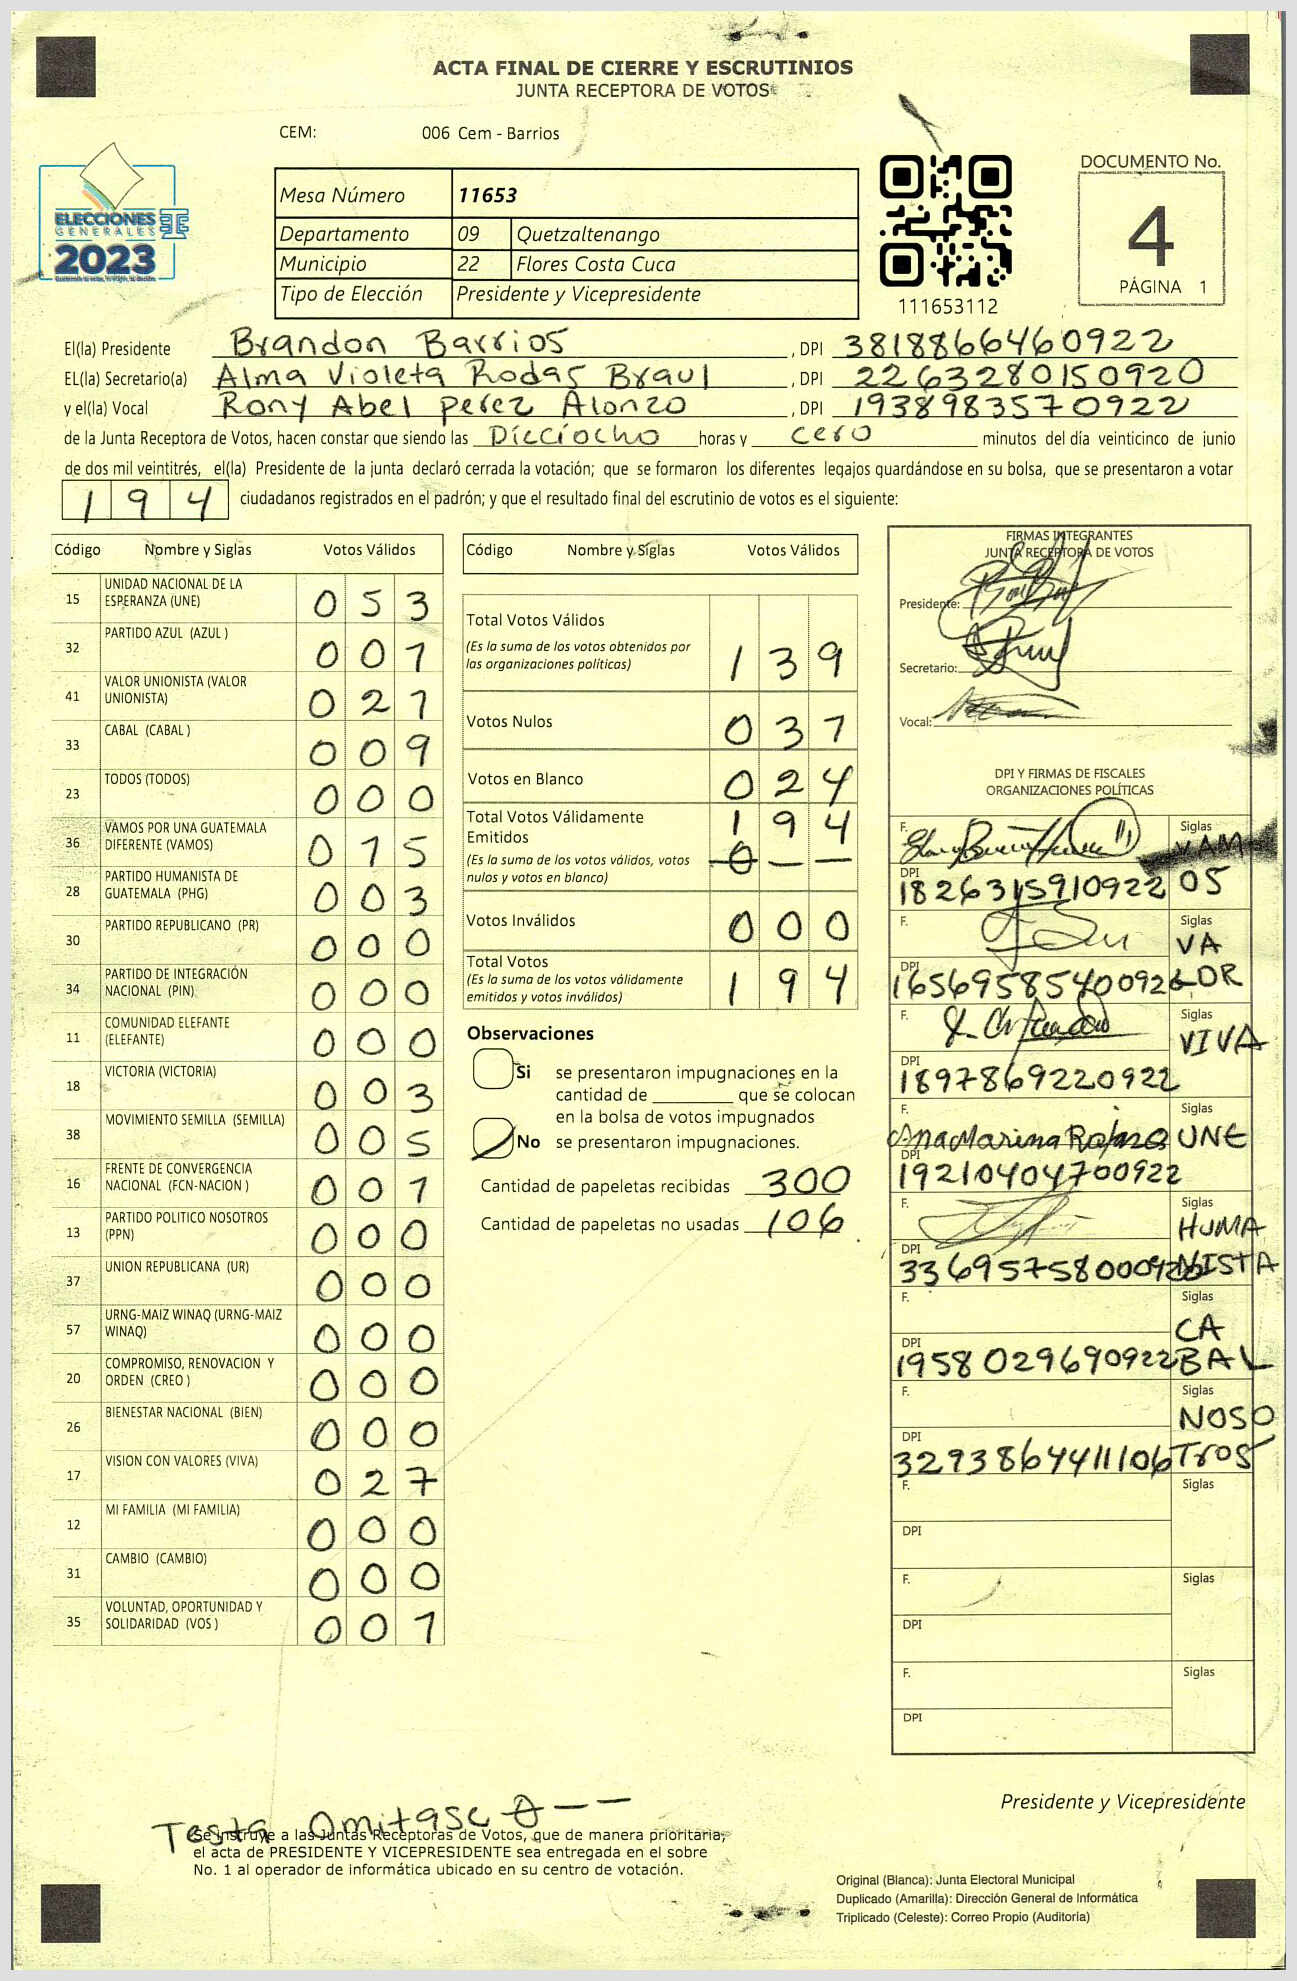 ACTA FINAL DE CIERRE Y ESCRUTINIOS
JUNTA RECEPTORA DE VOTOS
CEM: 006 Cem - Barrios
ELECCIONES
GENERALES
2023
Mesa Número 11653
Departamento 09 Quetzaltenango
Municipio 22 Flores Costa Cuca
Tipo de Elección Presidente y Vicepresidente
111653112
DOCUMENTO No.
4
PÁGINA 1
El(la) Presidente Brandon Barrios , DPI 3818866460922
EL(la) Secretario(a) Alma Violeta Rodas Braul , DPI 2263280150920
y el(la) Vocal Rony Abel perez Alonzo , DPI 1938983570922
de la Junta Receptora de Votos, hacen constar que siendo las Diecíocho horas y cero minutos del día veinticinco de junio
de dos mil veintitrés, el(la) Presidente de la junta declaró cerrada la votación; que se formaron los diferentes legajos guardándose en su bolsa, que se presentaron a votar
194 ciudadanos registrados en el padrón; y que el resultado final del escrutinio de votos es el siguiente:
Código Nombre y Siglas Votos Válidos
15 UNIDAD NACIONAL DE LA
ESPERANZA (UNE) 053
32 PARTIDO AZUL (AZUL ) 001
41 VALOR UNIONISTA (VALOR
UNIONISTA) 021
33 CABAL (CABAL ) 009
23 TODOS (TODOS) 000
36 VAMOS POR UNA GUATEMALA
DIFERENTE (VAMOS) 015
28 PARTIDO HUMANISTA DE
GUATEMALA (PHG) 003
30 PARTIDO REPUBLICANO (PR) 000
34 PARTIDO DE INTEGRACIÓN
NACIONAL (PIN) 000
11 COMUNIDAD ELEFANTE
(ELEFANTE) 000
18 VICTORIA (VICTORIA) 003
38 MOVIMIENTO SEMILLA (SEMILLA) 005
16 FRENTE DE CONVERGENCIA
NACIONAL (FCN-NACION ) 001
13 PARTIDO POLITICO NOSOTROS
(PPN) 000
37 UNION REPUBLICANA (UR) 000
57 URNG-MAIZ WINAQ (URNG-MAIZ
WINAQ) 000
20 COMPROMISO, RENOVACION Y
ORDEN (CREO ) 000
26 BIENESTAR NACIONAL (BIEN) 000
17 VISION CON VALORES (VIVA) 027
12 MI FAMILIA (MI FAMILIA) 000
31 CAMBIO (CAMBIO) 000
35 VOLUNTAD, OPORTUNIDAD Y
SOLIDARIDAD (VOS ) 001
Código Nombre y Siglas Votos Válidos
Total Votos Válidos
(Es la suma de los votos obtenidos por
las organizaciones políticas) 139
Votos Nulos 037
Votos en Blanco 024
Total Votos Válidamente
Emitidos 194
(Es la suma de los votos válidos, votos
nulos y votos en blanco) 0 — —
Votos Inválidos 000
Total Votos
(Es la suma de los votos válidamente
emitidos y votos inválidos) 194
Observaciones
Si se presentaron impugnaciones en la
cantidad de ________ que se colocan
en la bolsa de votos impugnados
No se presentaron impugnaciones.
Cantidad de papeletas recibidas 300
Cantidad de papeletas no usadas 106
FIRMAS INTEGRANTES
JUNTA RECEPTORA DE VOTOS
Presidente:
Secretario:
Vocal:
DPI Y FIRMAS DE FISCALES
ORGANIZACIONES POLÍTICAS
F. Siglas
VAM
DPI
1826315910922 OS
F. Siglas
VA
DPI
1656958540092 LOR
F. Siglas
VIVA
DPI
1897869220922
F. Siglas
Ana Marina UNE
DPI
19210404700922
F. Siglas
HUMA
DPI
NISTA
F. Siglas
CA
DPI
1958029690922 BAL
F. Siglas
NOSO
DPI
3293864411106 Tros
F. Siglas
DPI
F. Siglas
DPI
F. Siglas
DPI
Presidente y Vicepresidente
Testa Omitase 0 — —
Se instruye a las Juntas Receptoras de Votos, que de manera prioritaria,
el acta de PRESIDENTE Y VICEPRESIDENTE sea entregada en el sobre
No. 1 al operador de informática ubicado en su centro de votación.
Original (Blanca): Junta Electoral Municipal
Duplicado (Amarilla): Dirección General de Informática
Triplicado (Celeste): Correo Propio (Auditoría)